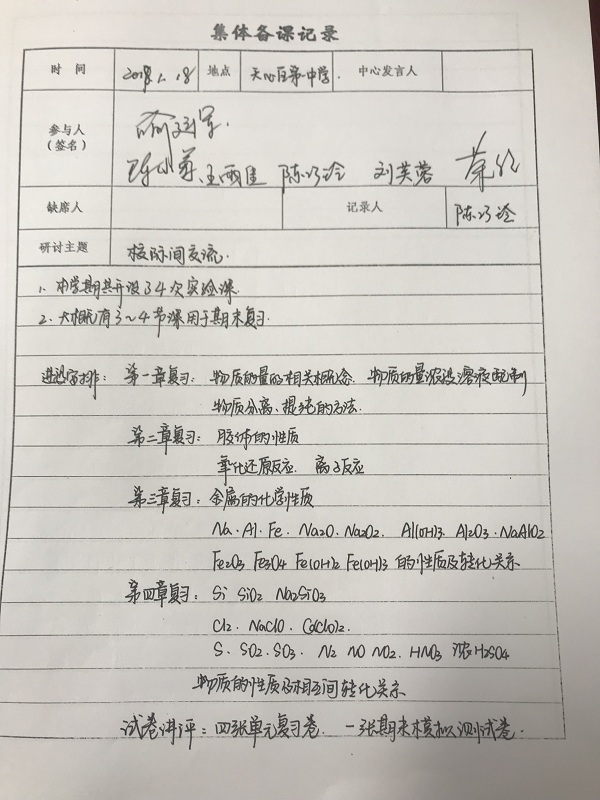 集体备课记录
时间 2018.1.18 地点 天心区第一中学. 中心发言人
参与人
(签名)
王雨佳 陈巧玲 刘芙蓉
缺席人 记录人 陈巧玲
研讨主题 校际间交流.
1. 本学期共开设了4次实验课.
2. 大概有3~4节课用于期末复习.
进退安排: 第一章复习: 物质的量的相关概念. 物质的量浓度溶液配制
物质分离、提纯的方法.
第二章复习: 胶体的性质
氧化还原反应. 离子反应
第三章复习: 金属的化学性质
Na. Al. Fe. Na2O. Na2O2. Al(OH)3. Al2O3. NaAlO2
Fe2O3 Fe3O4 Fe(OH)2 Fe(OH)3 的性质及转化关系.
第四章复习: Si SiO2 Na2SiO3
Cl2. NaClO. Ca(ClO)2.
S. SO2. SO3. N2 NO NO2. HNO3 浓H2SO4
物质的性质及相互间转化关系.
试卷讲评: 四张单元复习卷. 一张期末模拟测试卷.